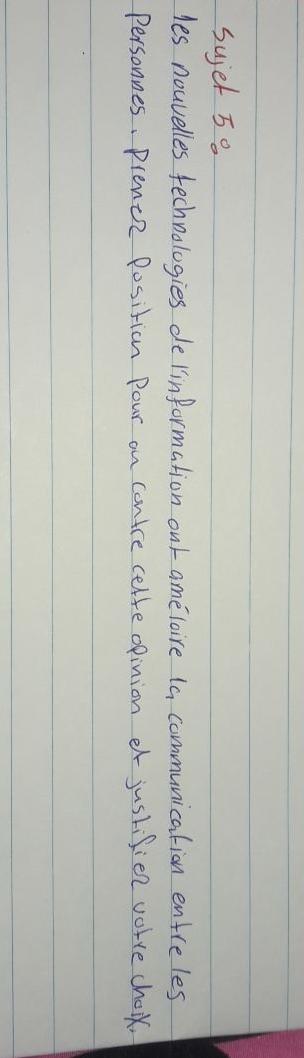 Sujet 5:
les nouvelles technologies de l'information ont améloire la communication entre les
Personnes. Prenez Position Pour ou contre cette opinion et justifiez votre choix.